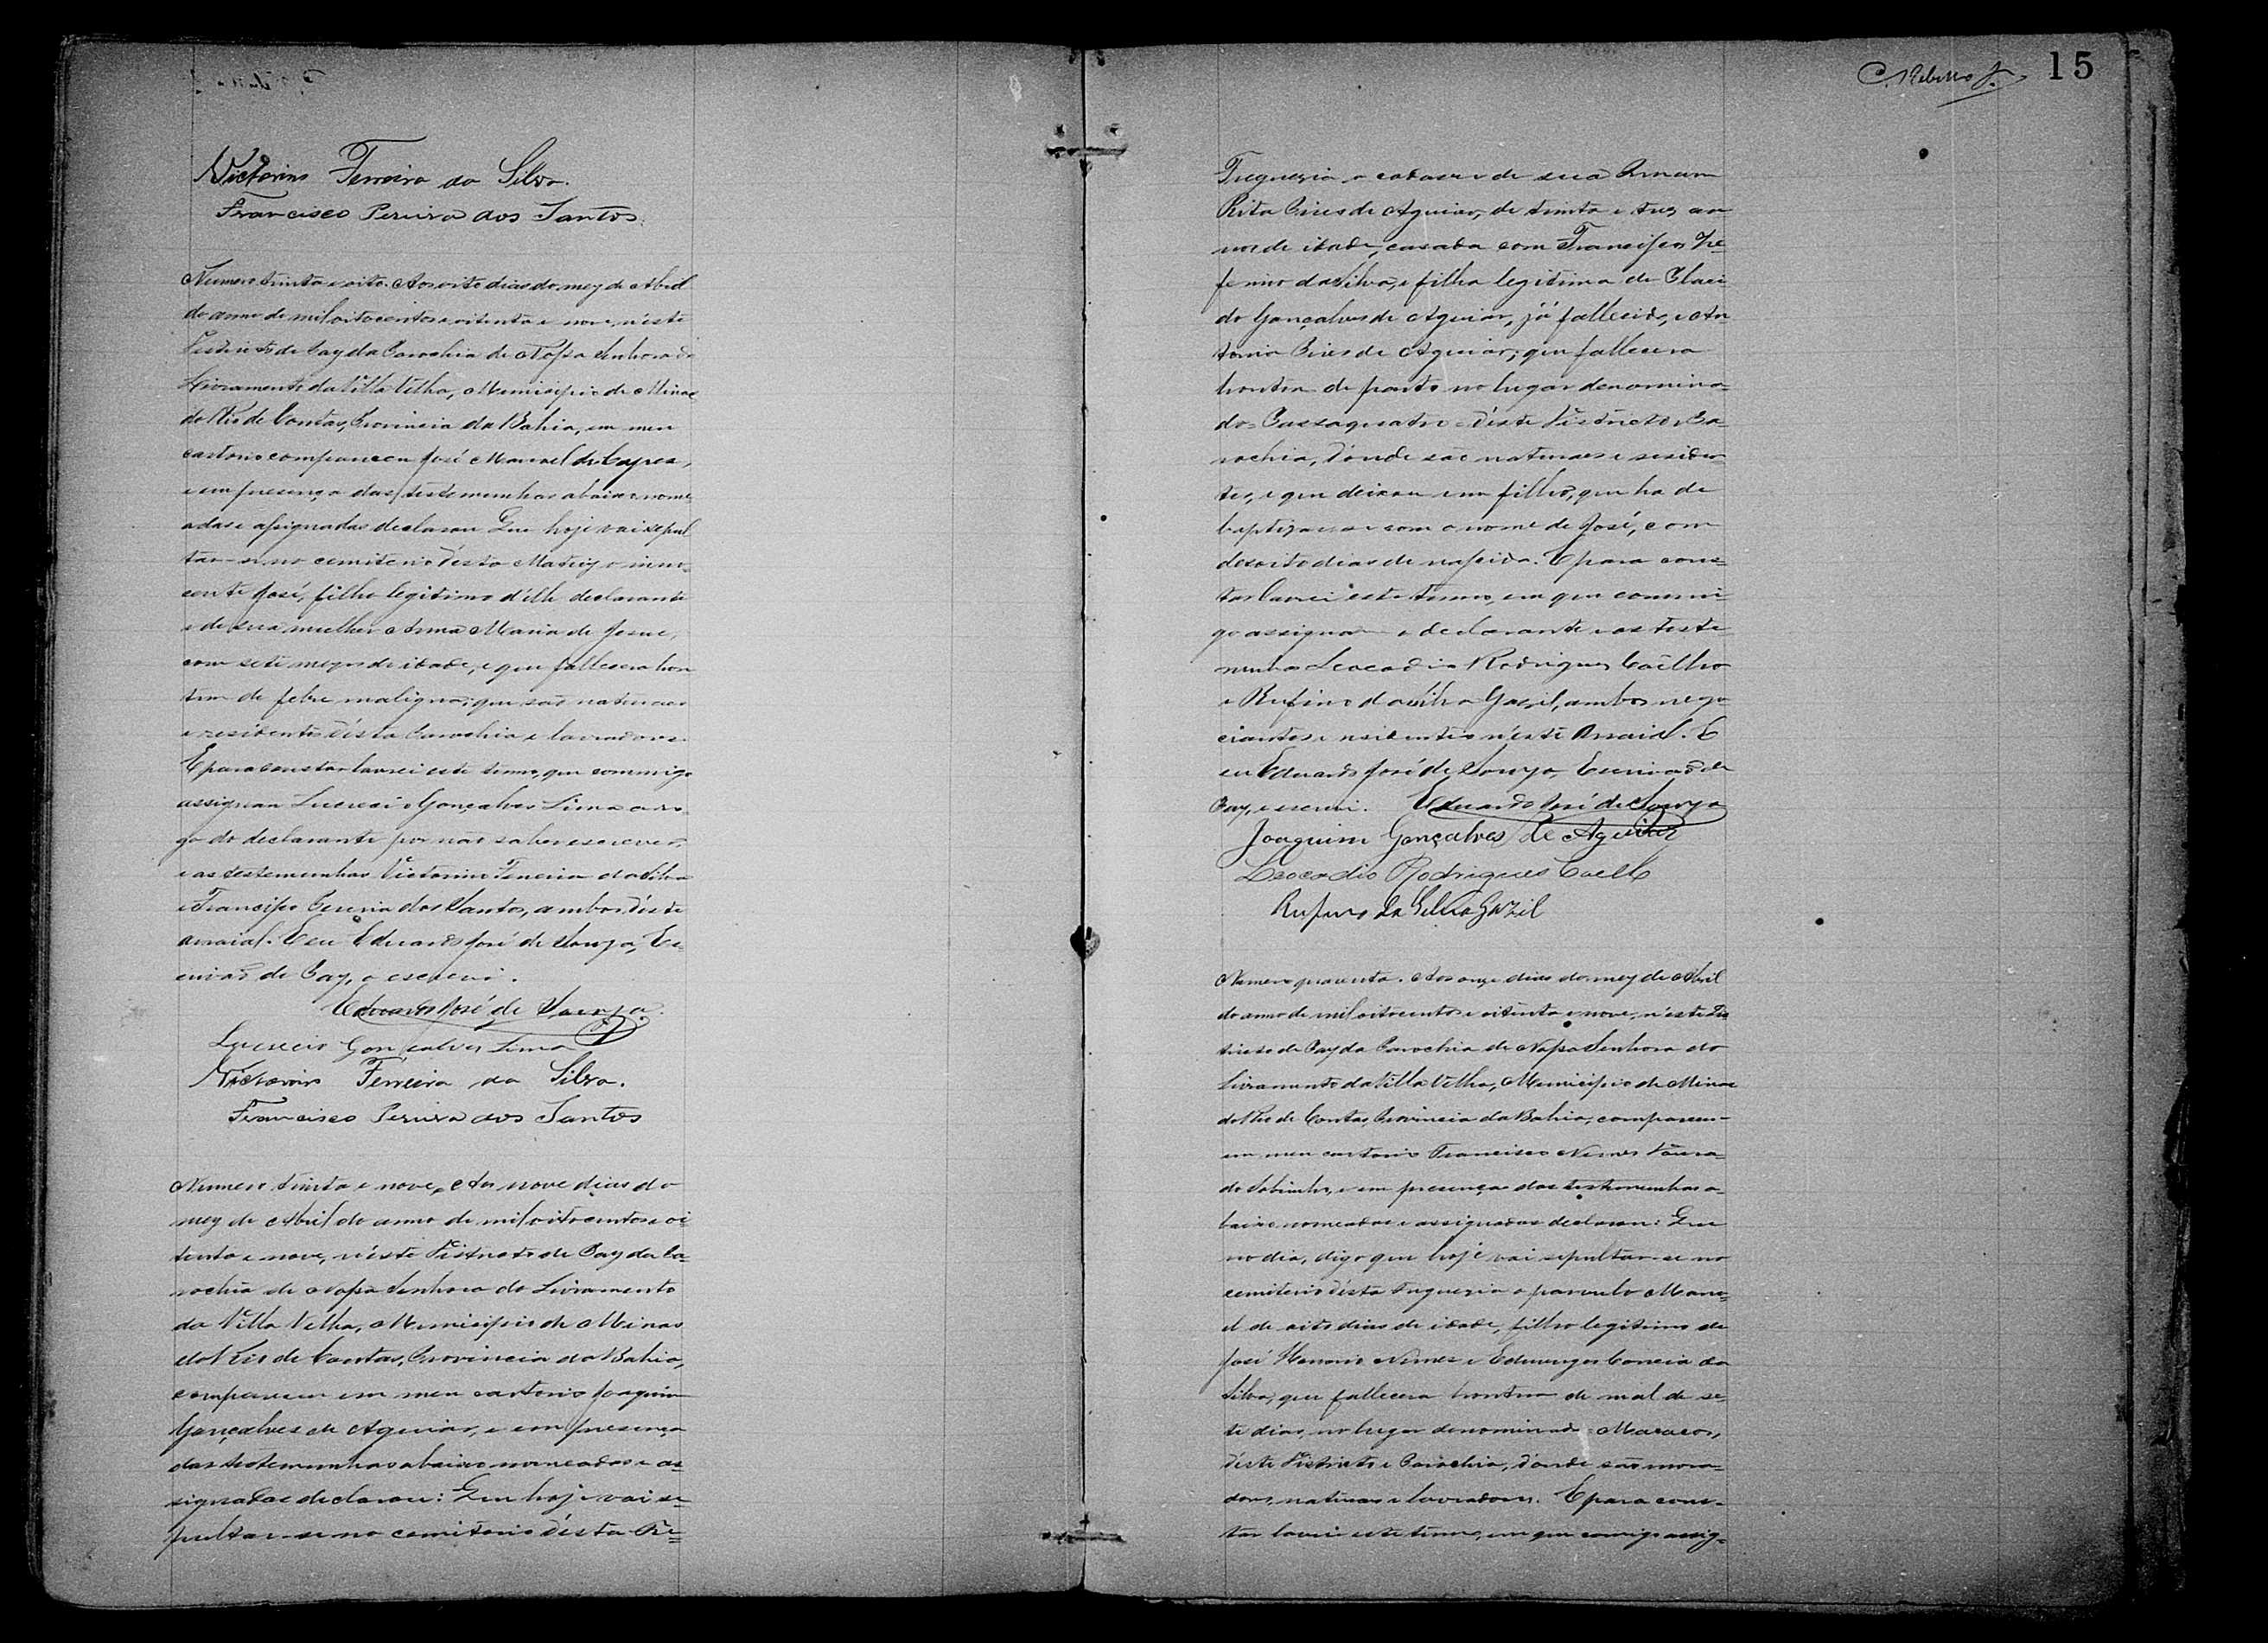 Victorino Ferreira da Silva.
Francisco Pereira dos Santos.
Numero trinta e oito. Aos oito dias do mez de Abril
do anno de mil oitocentos e oitenta e nove, n'este
Districto de Paz da Parochia de Nossa Senhora do
Livramento da Villa Velha, Municipio de Minas
do Rio de Contas, Provincia da Bahia, em meu
cartorio compareceu José Manoel de
e em presença das testemunhas abaixo nome
adas e assignadas declarou Que hoje vai sepul
tar-se no cemiterio d'esta Matriz o inno-
cente José, filho legitimo d'elle declarante
e de sua mulher Anna Maria de Jesus,
com sete mezes de idade, e que fallecera hon
tem de febre maligna; que são naturaes
e residentes d'esta Parochia e lavradores.
E para constar lavrei este termo, que commigo
assignam Lucrecio Gonçalves Lima a ro-
go do declarante por não saber escrever,
e as testemunhas Victorino Ferreira da Silva
e Francisco Pereira dos Santos, ambos d'este
arraial. E eu Eduardo José de Souza, Es-
crivão de Paz, o escrevi.
Eduardo José de Souza.
Lucrecio Gonçalves Lima
Victorino Ferreira da Silva.
Francisco Pereira dos Santos
Numero trinta e nove, Aos nove dias do
mez de Abril do anno de mil oitocentos e oi-
tenta e nove, n'este Districto de Paz da Pa-
rochia de Nossa Senhora do Livramento
da Villa Velha, Municipio de Minas
do Rio de Contas, Provincia da Bahia,
compareceu em meu cartorio Joaquim
Gonçalves de Aguiar, e em presença
das testemunhas abaixo nomeadas e as-
signadas declarou: Que hoje vai se-
pultar-se no cemiterio d'esta Fre=
15
Freguezia o cadaver de sua Irmam
Rita Pires de Aguiar, de trinta e tres an
nos de idade, casada com Francisco
da Silva, e filha legitima de Placi
do Gonçalves de Aguiar, já fallecido, e An
tonia Pires de Aguiar; que fallecera
hontem de parto no lugar denomina-
do= Passaquatro = d'este Districto e Pa-
rochia, d'onde são naturaes e residen
tes, e que deixou um filho, que ha de
baptizar-se com o nome de José, com
desoito dias de nascido. E para cons=
tar lavrei este termo, em que commi-
go assignam o declarante e as teste-
munhas Leocadio Rodrigues Coêlho
e Rufino da Silva Gazil, ambos nego
ciantes e residentes n'este Arraial. E
eu Eduardo José de Souza, Escrivão de
Paz, escrevi. Eduardo José de Souza
Joaquim Gonçalves de Aguiar
Leocadio Rodrigues Coelho
Rufino da Silva Gazil
Numero quarenta. Aos onze dias do mez de Abril
do anno de mil oitocentos e oitenta e nove, n'este Dis
tricto de Paz da Parochia de Nossa Senhora do
Livramento da Villa Velha, Municipio de Minas
do Rio de Contas, Provincia da Bahia, compareceu-
em meu cartorio Francisco Nunes
do Sobrinho, e em presença das testemunhas a-
baixo nomeadas e assignadas declarou: Que
no dia, digo que hoje vai sepultar-se no
cemiterio d'esta Freguezia o parvulo Mano-
el de oito dias de idade, filho legitimo de
José Honorio Nunes e Correia da
Silva, que fallecera hontem de mal de se-
te dias, no lugar denominado=
d'este Districto e Parochia, d'onde são mora-
dores, naturaes e lavradores. E para cons-
tar lavrei este termo, em que comigo assig-